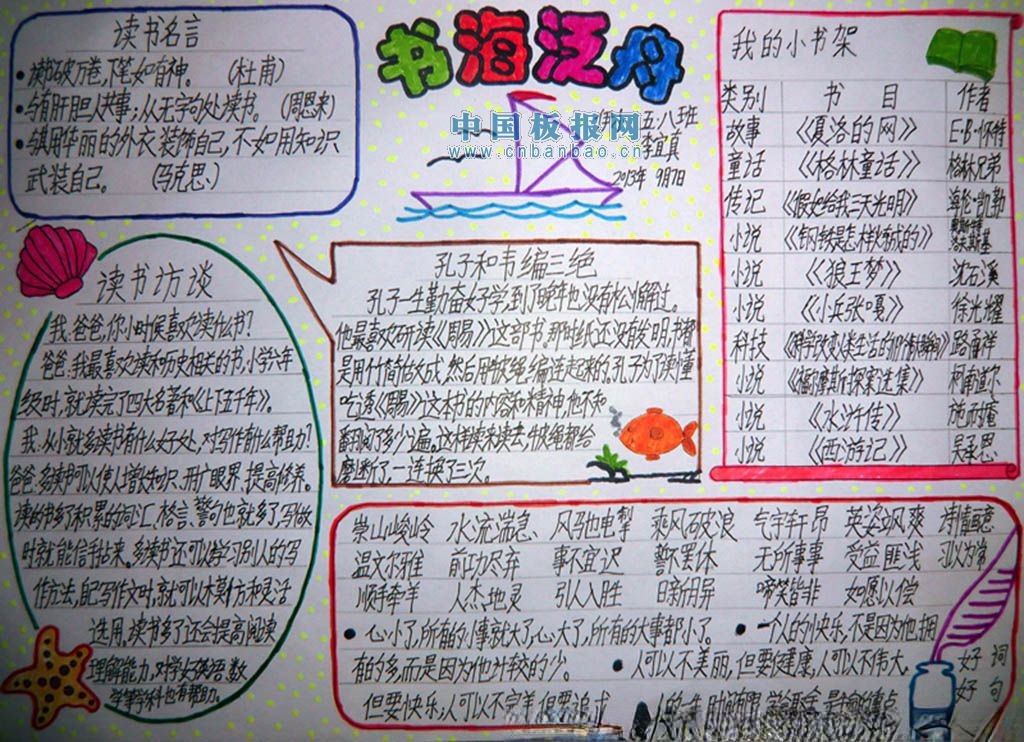 书海泛舟
中国板报网
www.cnbanbao.cn
五.八班
李宜真
2013年 9月7日
读书名言
读书破万卷,下笔如有神。 (杜甫)
与有肝胆人共事;从无字句处读书。 (周恩来)
与其用华丽的外衣装饰自己,不如用知识
武装自己。 (马克思)
我的小书架
类别 书 目 作者
故事 《夏洛的网》 E·B·怀特
童话 《格林童话》 格林兄弟
传记 《假如给我三天光明》 海伦·凯勒
小说 《钢铁是怎样炼成的》 奥斯特洛夫斯基
小说 《狼王梦》 沈石溪
小说 《小兵张嘎》 徐光耀
科技 路甬祥
小说 《福尔摩斯探案选集》 柯南道尔
小说 《水浒传》 施耐庵
小说 《西游记》 吴承恩
读书访谈
我:爸爸,你小时候喜欢读什么书?
爸爸:我最喜欢读和历史相关的书,小学六年
级时,就读完了四大名著和《上下五千年》。
我:从小就多读书有什么好处,对写作有什么帮助?
爸爸:多读书可以使人增长知识、开广眼界、提高修养。
读的书多了积累的词汇、格言、警句也就多了,写作
时就能信手拈来。多读书还可以学习别人的写
作方法,自己写作文时,就可以模仿和灵活
选用,读书多了还会提高阅读
理解能力,对学好英语、数
学等学科也有帮助。
孔子和韦编三绝
孔子一生勤奋好学,到了晚年也没有松懈过。
他最喜欢研读《周易》这部书,那时纸还没发明,书都
是用竹简做成,然后用牛皮绳编连起来的。孔子为了读懂
吃透《周易》这本书的内容和精神,他不知
翻阅了多少遍。这样读来读去,牛皮绳都给
磨断了,一连换了三次。
崇山峻岭 水流湍急 风马牛电掣 乘风破浪 气宇轩昂 英姿飒爽 诗情画意
温文尔雅 前功尽弃 事不宜迟 誓不罢休 无所事事 受益匪浅 习以为常
顺手牵羊 人杰地灵 引人入胜 日新月异 啼笑皆非 如愿以偿
心小了,所有的小事就大了;心大了,所有的大事都小了。 一个人的快乐,不是因为他拥
有的多,而是因为他计较的少。 人可以不美丽,但要健康;人可以不伟大,
但要快乐;人可以不完美,但要追求
好词
好句